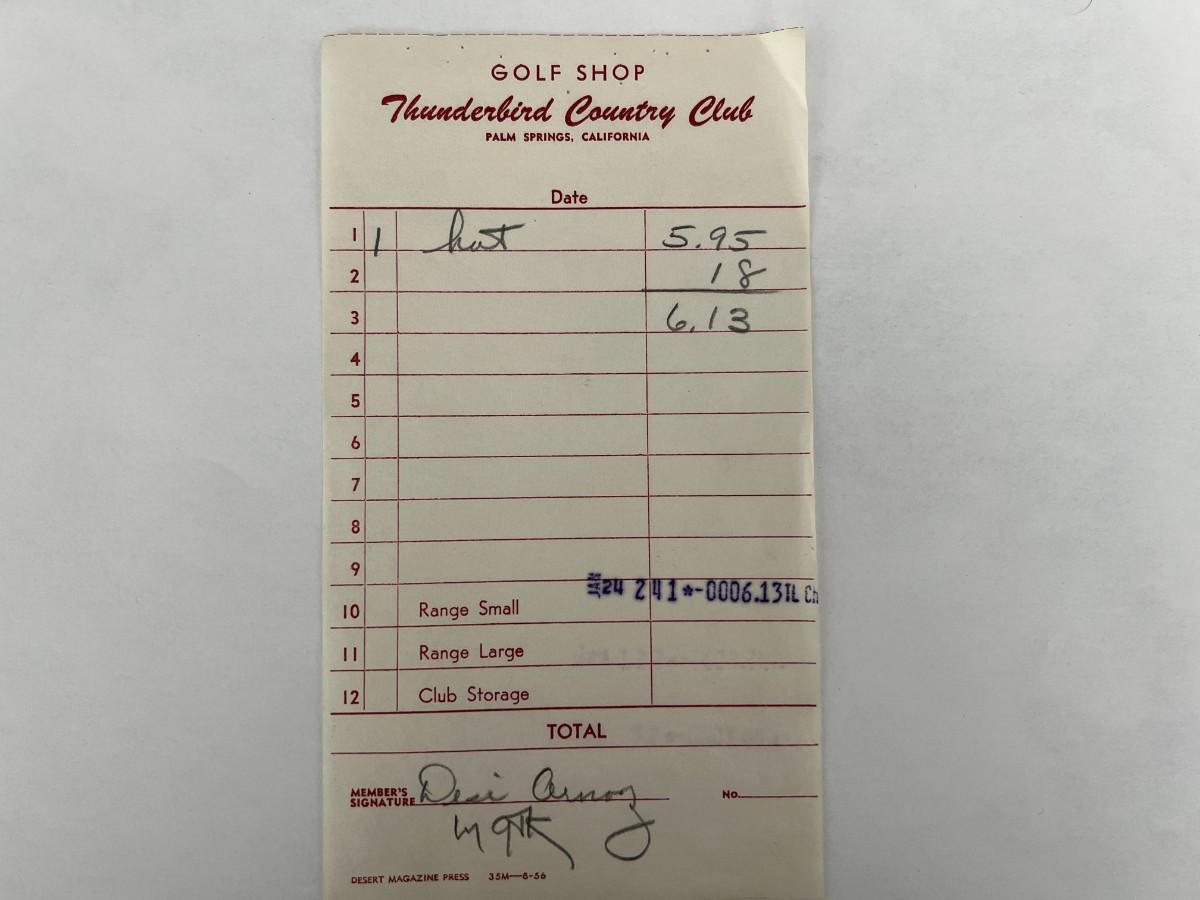 GOLF SHOP
Thunderbird Country Club
PALM SPRINGS, CALIFORNIA
Date
1 1 hat 5.95
2 18
3 6.13
4
5
6
7
8
9
JAN 24 2 41 *-0006.13TL Ch
10 Range Small
11 Range Large
12 Club Storage
TOTAL
MEMBER'S SIGNATURE Desi Arnaz No.
DESERT MAGAZINE PRESS 35M—8-56